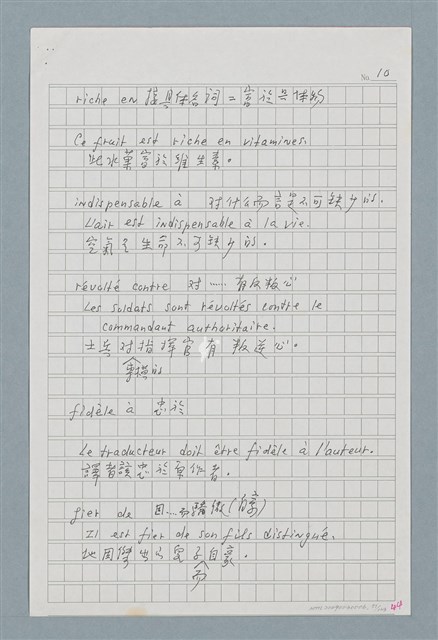 No. 10
riche en 接具体名词 = 富於具体物
Ce fruit est riche en vitamines.
此水菓富於維生素。
indispensable à 对什么而言是不可缺少的.
L'air est indispensable à la vie.
空氣是生命不可缺少的。
révolté contre 对……有反叛心
Les soldats sont révoltés contre le
commandant authoritaire.
士兵对專横的指揮官有叛逆心。
fidèle à 忠於
Le traducteur doit être fidèle à l'auteur.
譯者該忠於原作者。
fier de 因……而驕傲(自豪)
Il est fier de son fils distingué.
他因傑出的兒子而自豪。
44